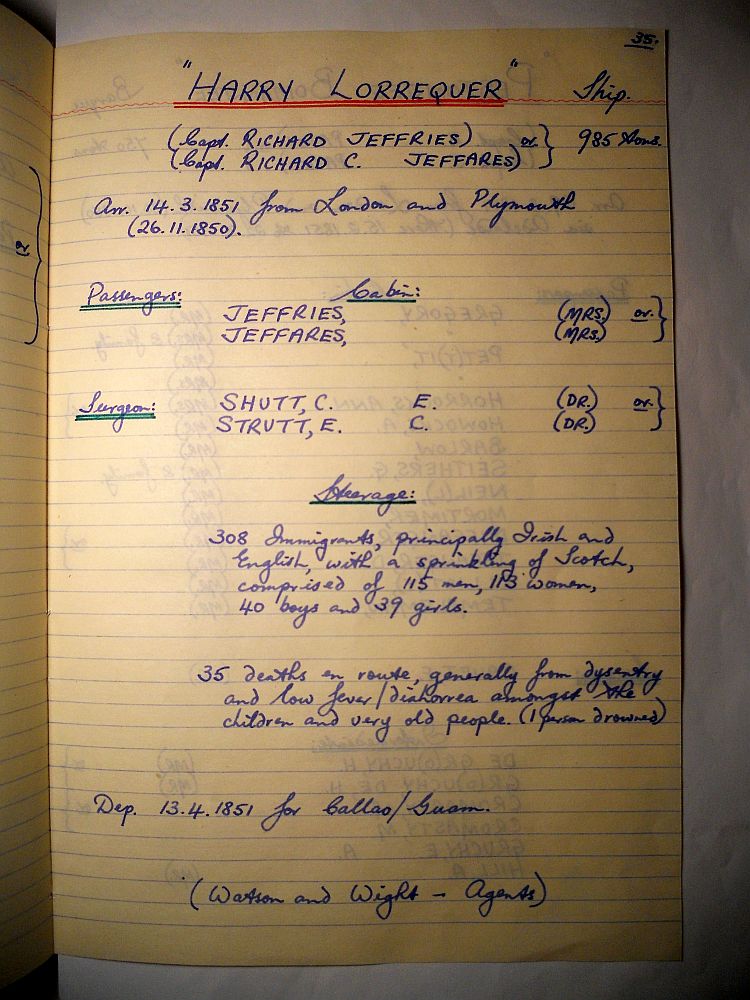 35.
"HARRY LORREQUER" Ship.
(Capt. RICHARD JEFFRIES) or } 985 tons.
(Capt. RICHARD C. JEFFARES)
Arr. 14.3.1851 from London and Plymouth
(26.11.1850).
Passengers: Cabin:
JEFFRIES, (MRS.) or }
JEFFARES, (MRS.)
Surgeon: SHUTT, C. E. (DR.) or }
STRUTT, E. C. (DR.)
Steerage:
308 Immigrants, principally Irish and
English, with a sprinkling of Scotch,
comprised of 115 men, 113 women,
40 boys and 39 girls.
35 deaths en route, generally from dysentry
and low fever/diahorrea amongst the
children and very old people. (1 person drowned)
Dep. 13.4.1851 for Callao/Guam.
(Watson and Wight - Agents)
or }